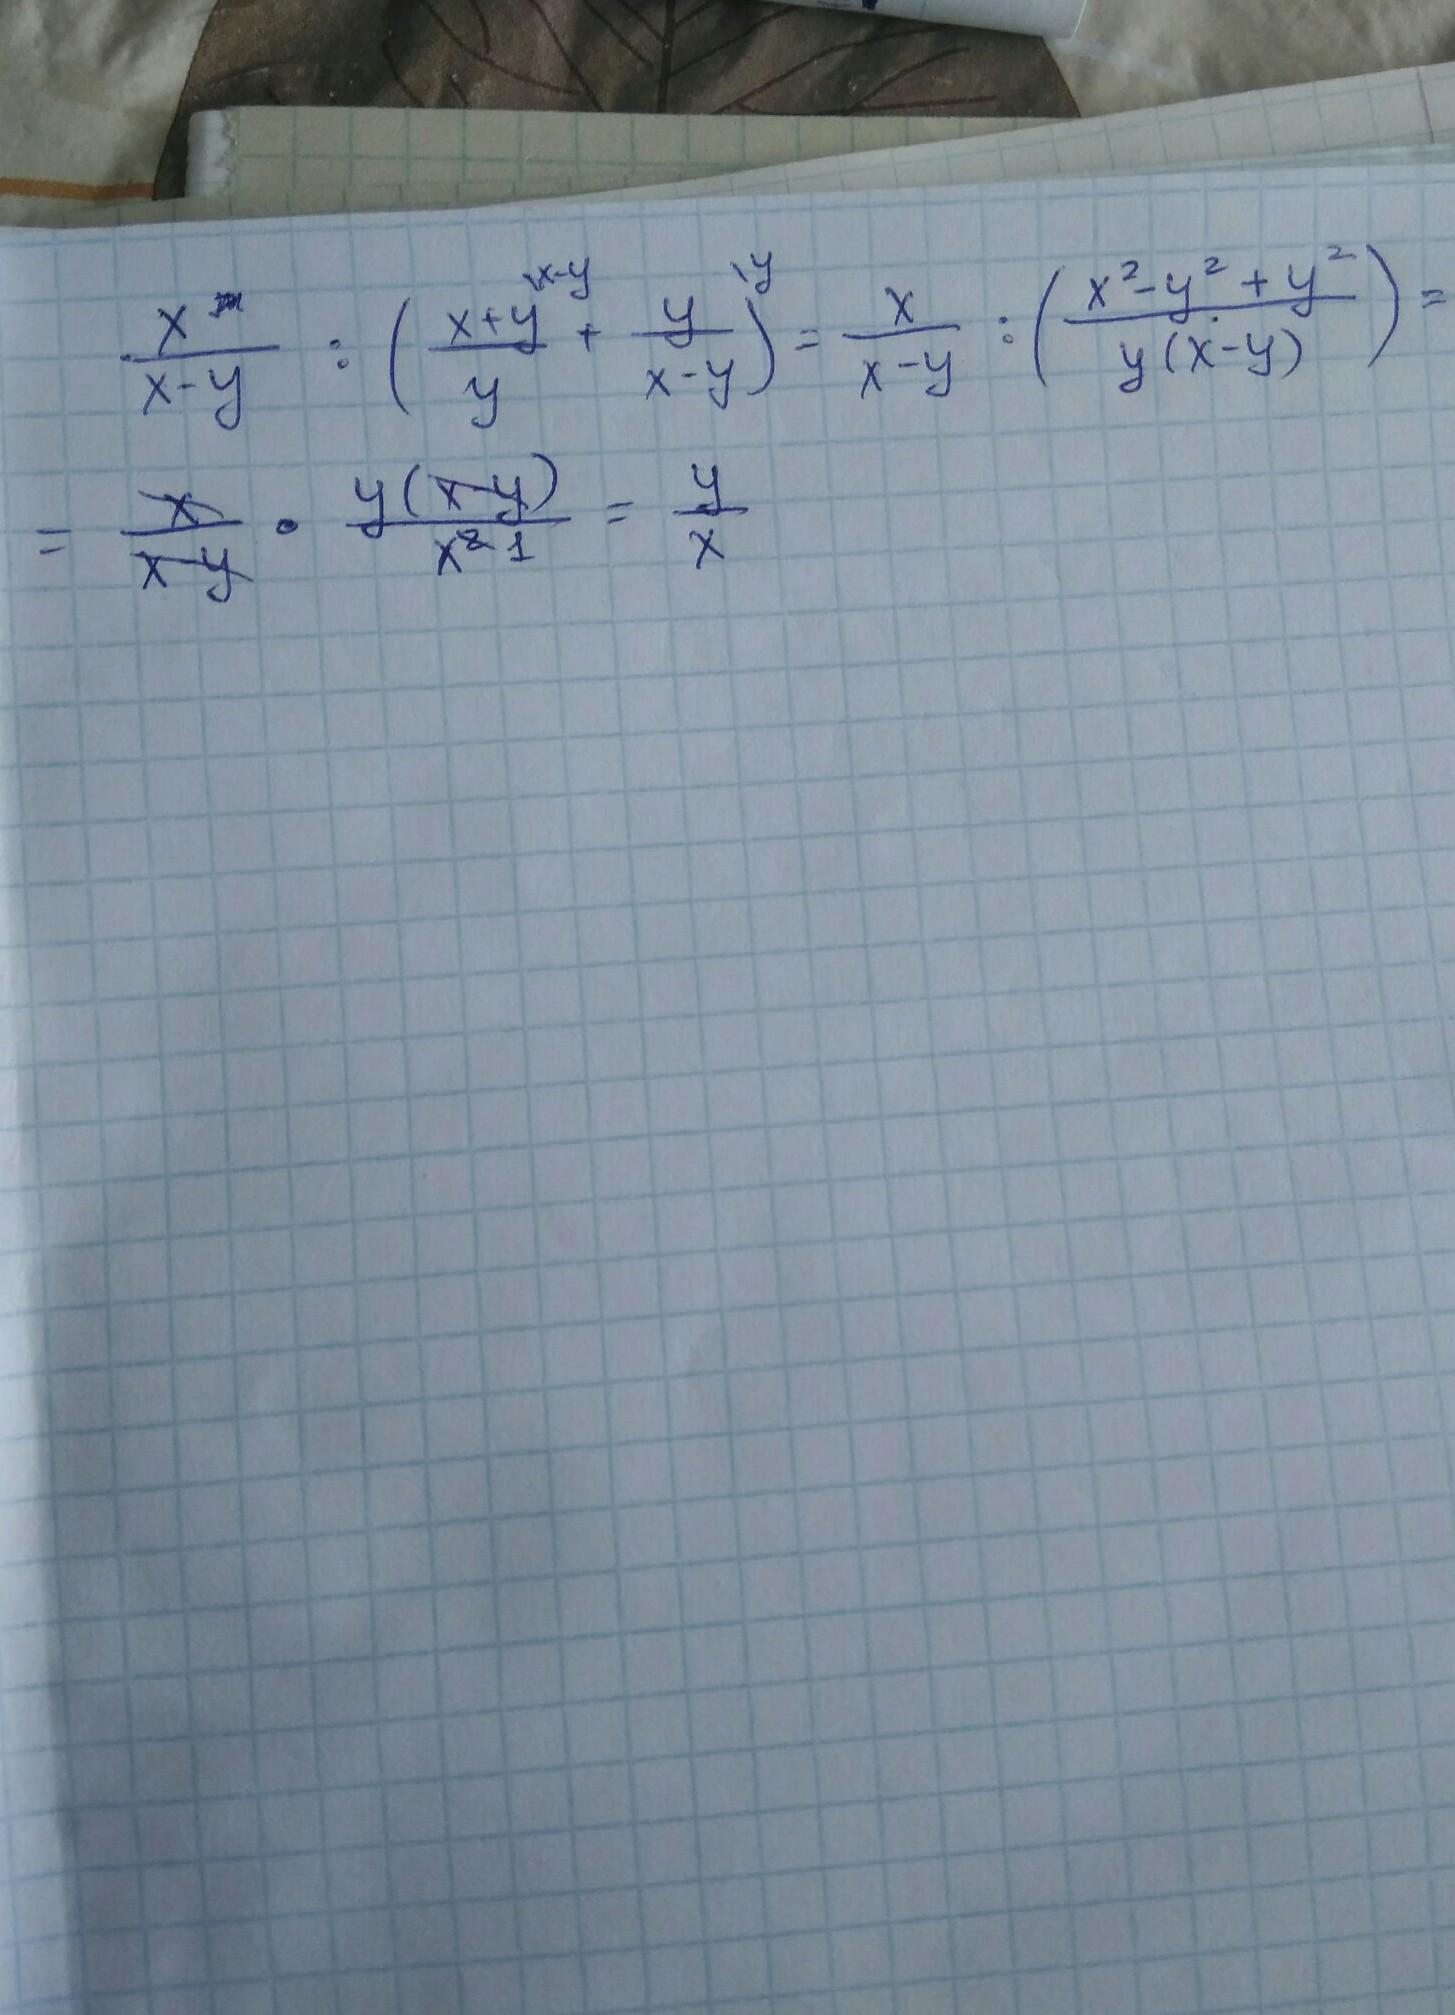 x/(x-y) : ((x+y)/y \x-y + y/(x-y) \y) = x/(x-y) : ((x²-y²+y²)/(y(x-y))) =
= x/(x-y) · y(x-y)/x² 1 = y/x